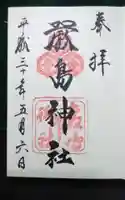 奉拝
嚴島神社
平成三十年五月六日